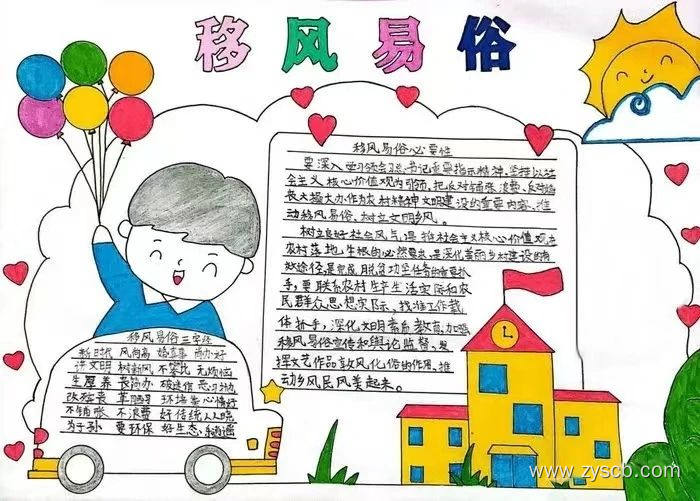 移风易俗
移风易俗必要性
要深入学习领会习总书记重要指示精神,坚持以社
会主义核心价值观为引领,把反对铺张浪费、反对婚
丧大操大办作为农村精神文明建设的重要内容、推
动移风易俗,树立文明乡风。
树立良好社会风气,是推社会主义核心价值观在
农村落地生根的必然要求,是深化美丽乡村建设的有
效途径,是完成脱贫攻坚任务的重要抓
手,要联系农村生产生活实际和农
民群众思想实际,找准工作载
体抓手,深化文明素自教育,加强
移风易俗宣传和舆论监督、发
挥文艺作品敦风化俗的作用,推
动乡风民风美起来。
移风易俗三字经
新时代 风向高 婚喜事 尚办好
讲文明 树新风 不攀比 无烦恼
生厚养 丧简办 破迷信
不铺张 不浪费 好传统 人人晓
要环保 好生态
www.zyscb.com